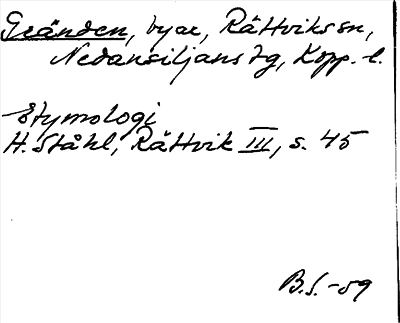 Gränden, byar, Rättviks sn,
Nedansiljans tg, Kopp. l.
Etymologi
H. Ståhl, Rättvik III, s. 45
B.S. -59